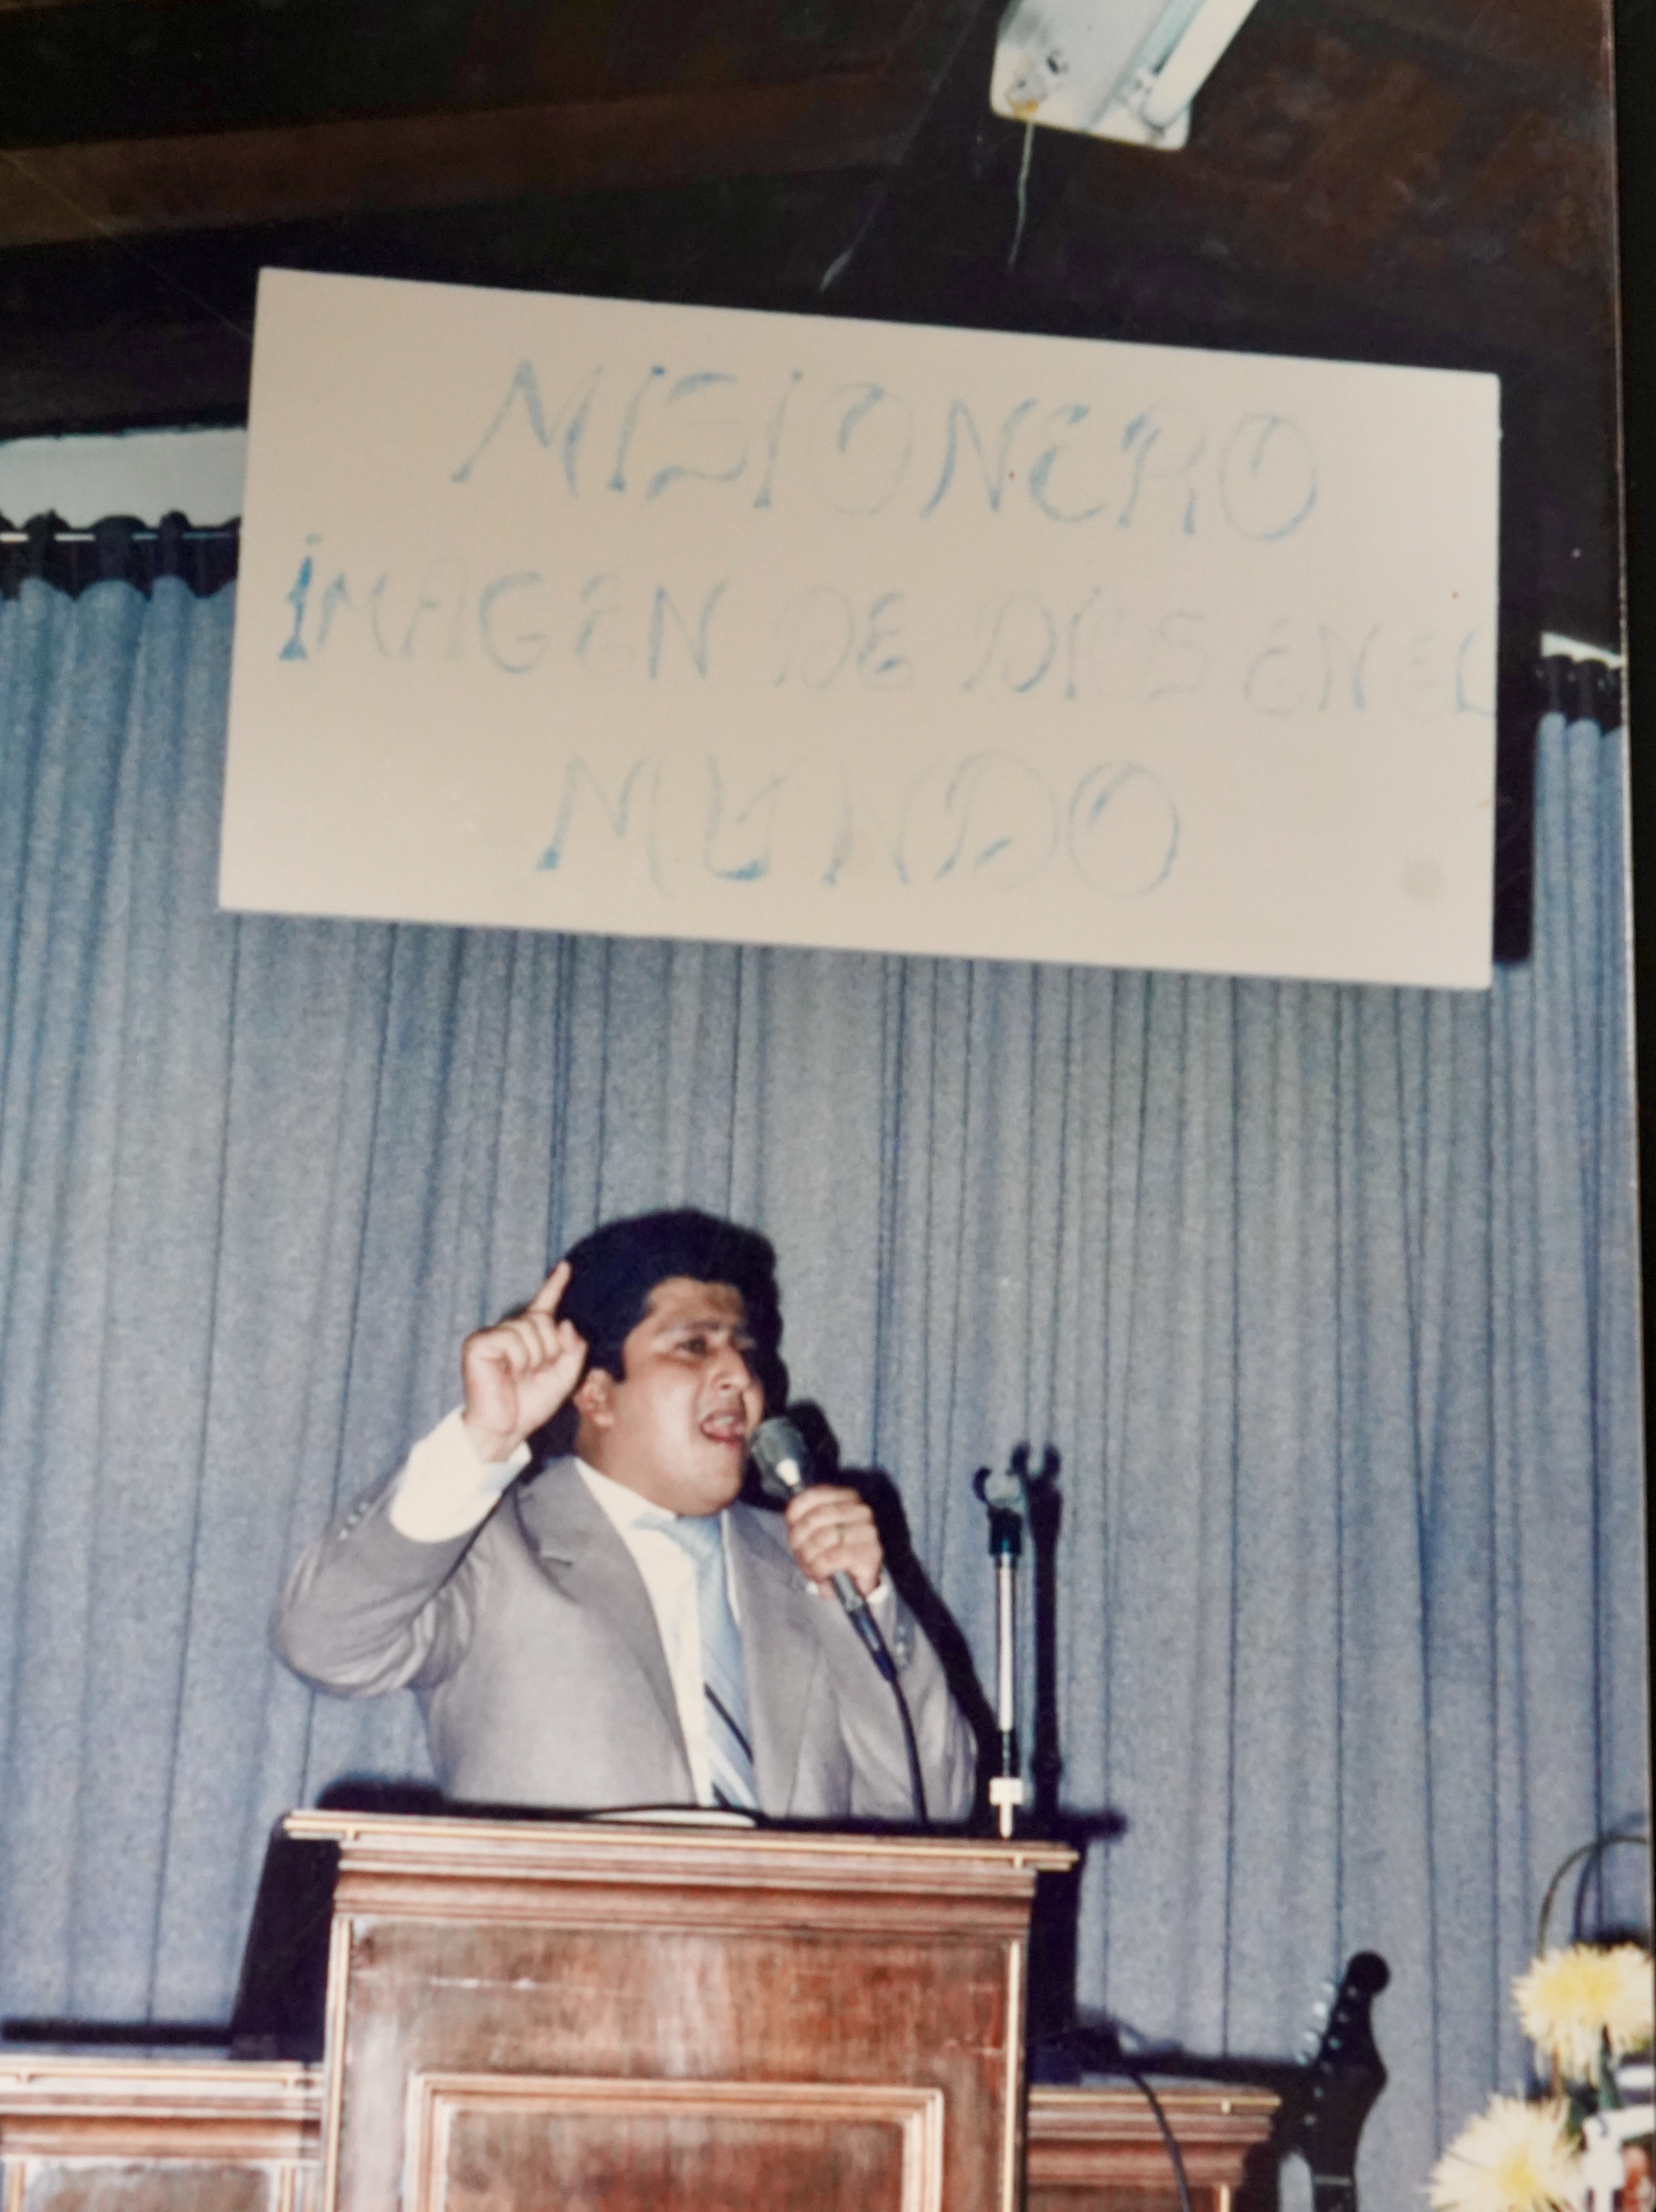 MISIONERO
IMAGEN DE DIOS EN EL
MUNDO